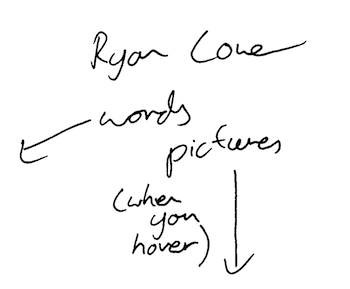 Ryan Cowe
words
pictures
(when
you
hover)